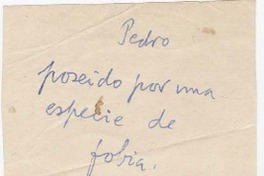 Pedro
poseido por una
especie de
fobia.